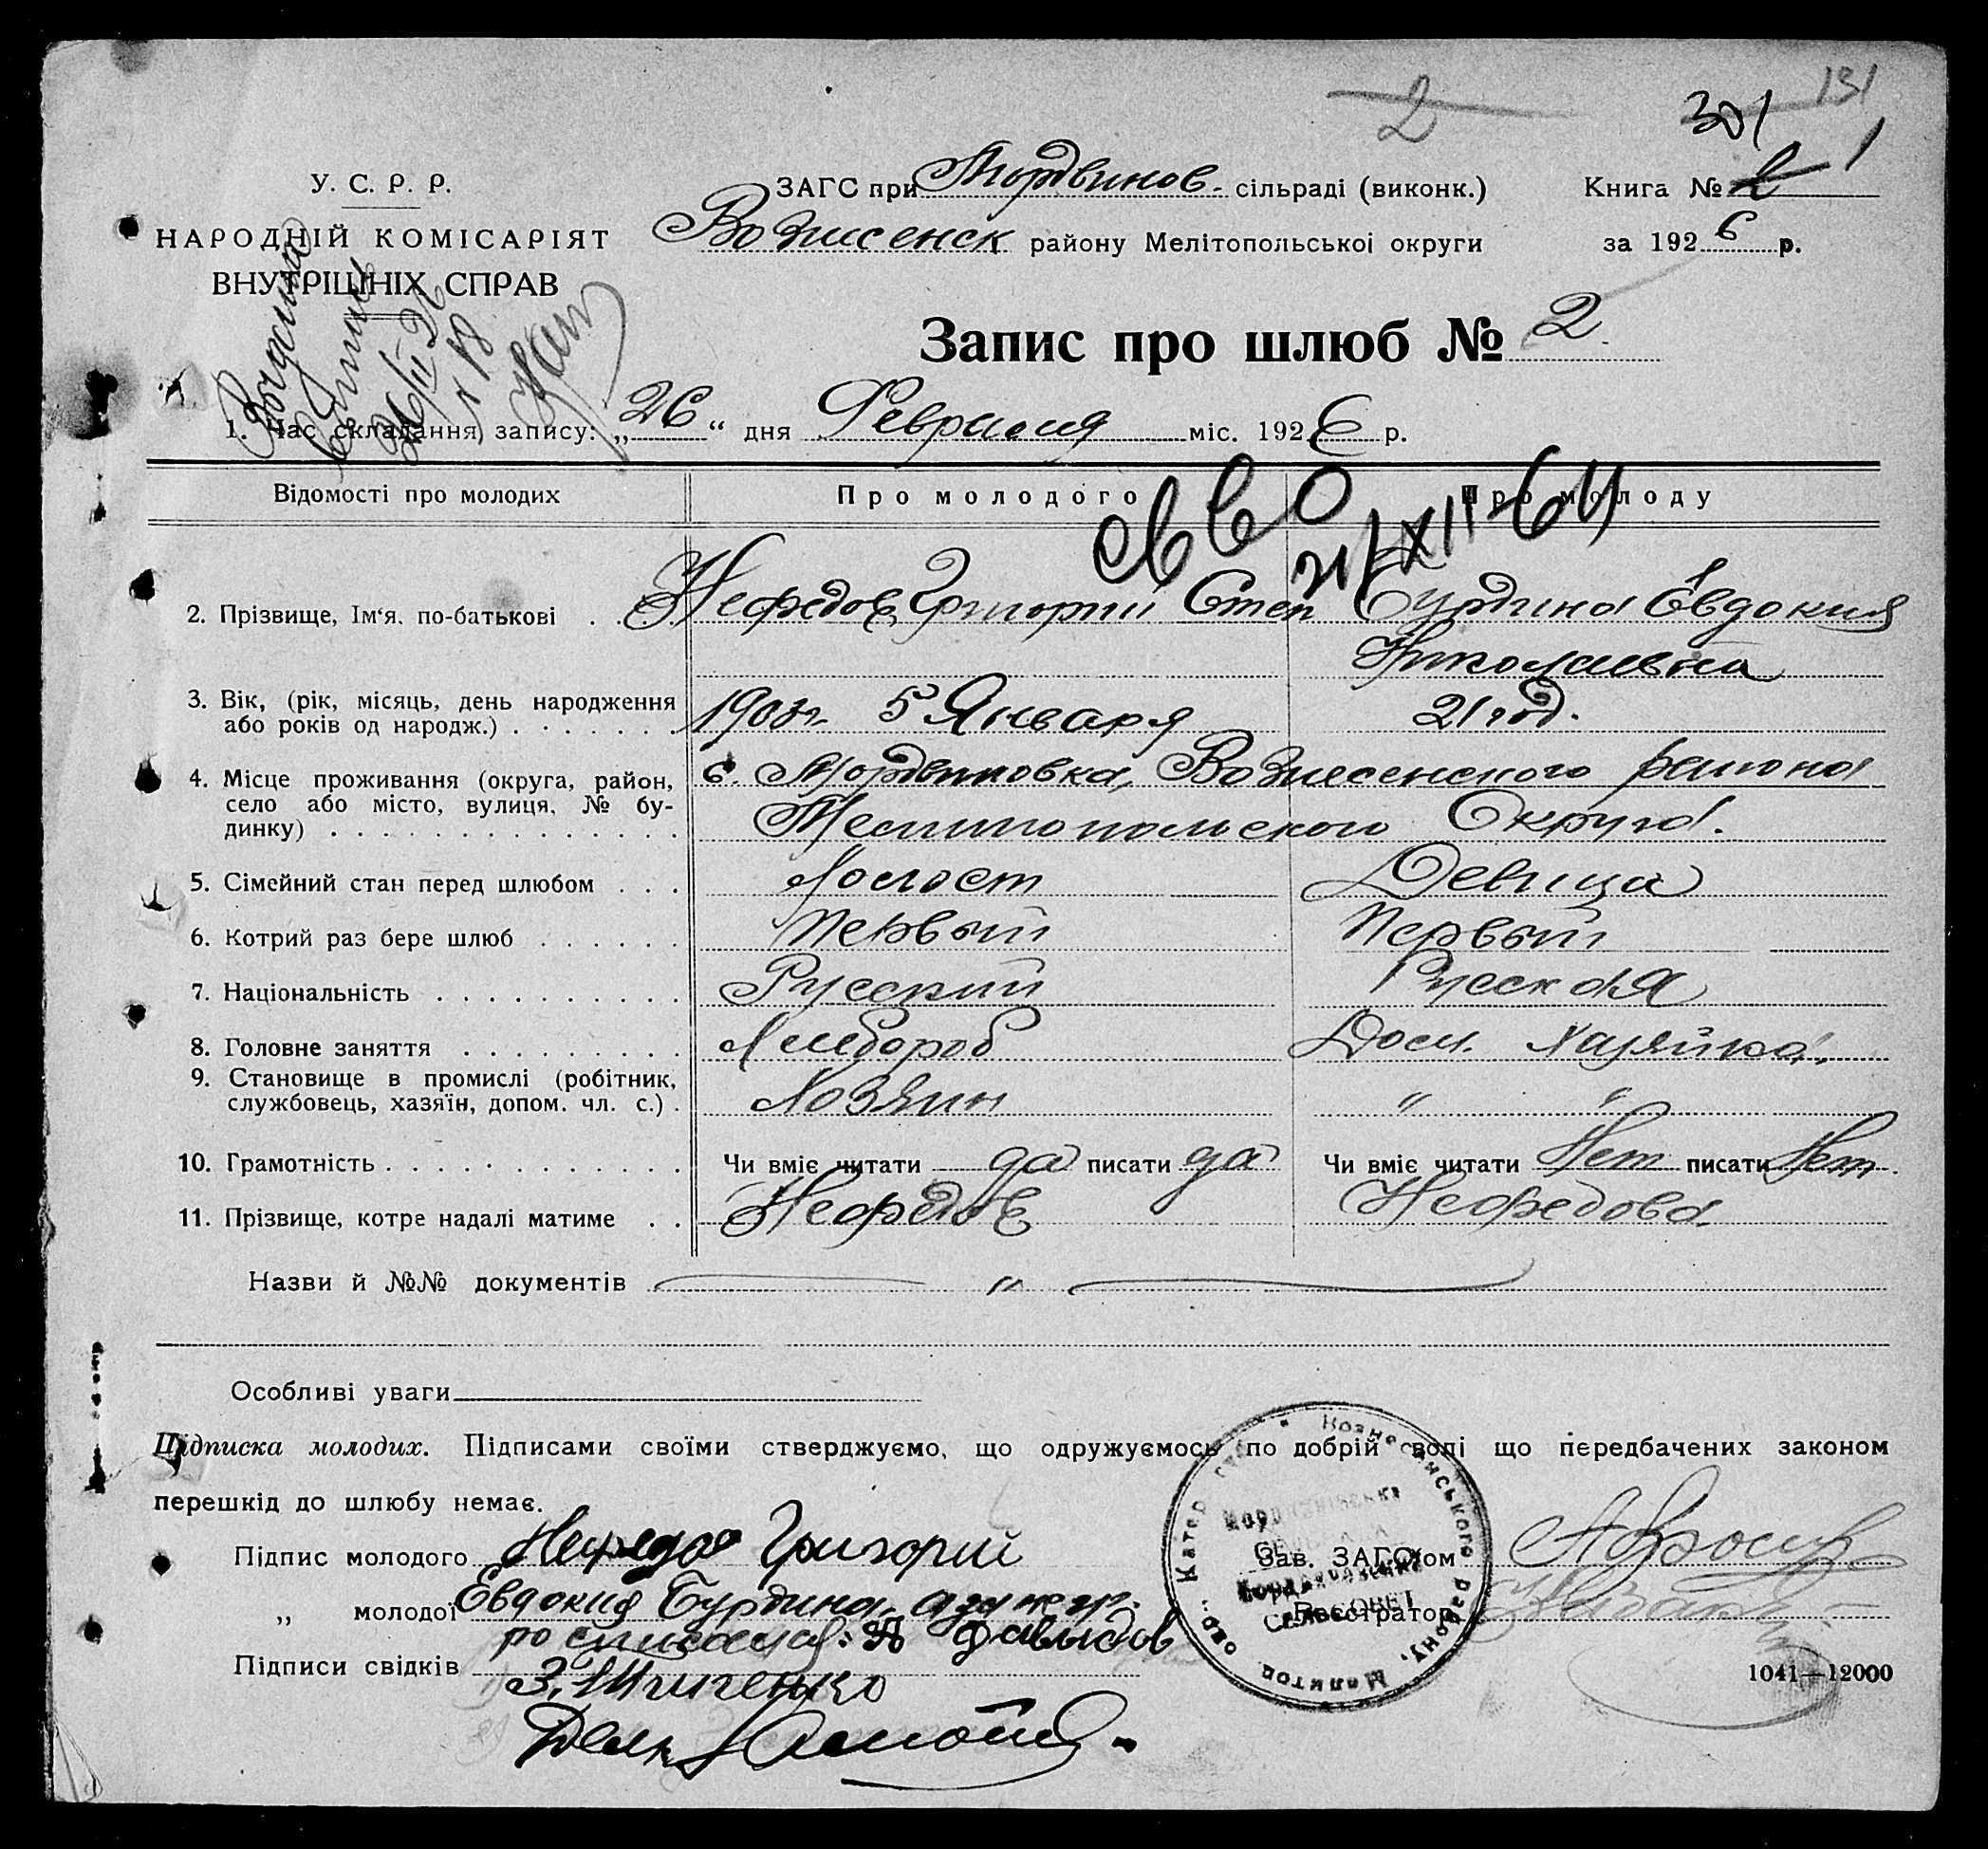 2 131
301
У. С. Р. Р.
НАРОДНІЙ КОМІСАРІЯТ
ВНУТРІШНІХ СПРАВ
ЗАГС при Мордвинов. сільраді (виконк.) Книга № 2 1
Вознесенск району Мелітопольської округи за 1926 р.
Запис про шлюб № 2
Выдана
26/II 26
№ 18
1. Час складання запису: „26“ дня Февраля міс. 1926 р.
Відомості про молодих Про молодого Про молоду
21/XII-64
2. Прізвище, Ім‘я. по-батькові . . . Нефедов Григорий Степ Бурдина Евдокия
Николаевна
3. Вік, (рік, місяць, день народження
або років од народж.) . . . . . . . 1903 г. 5 Января 21 год.
4. Місце проживання (округа, район, с. Мордвиновка, Вознесенского района
село або місто, вулиця, № бу-
динку) . . . . . . . . . . . . . . Мелитопольского Округа.
5. Сімейний стан перед шлюбом . . . Холост Девица
6. Котрий раз бере шлюб . . . . . . Первый Первый
7. Національність . . . . . . . . . . Русский Русская
8. Головне заняття . . . . . . . . . Хлебороб Дом. Хазяйка.
9. Становище в промислі (робітник,
службовець, хазяїн, допом. чл. с.) . Хозяин " "
10. Грамотність . . . . . . . . . . . . Чи вміє читати да писати да Чи вміє читати Нет писати Нет.
11. Прізвище, котре надалі матиме . . Нефедов Нефедова.
Назви й №№ документів "
Особливі уваги
Підписка молодих. Підписами своїми стверджуємо, що одружуємось по добрій волі що передбачених законом
перешкід до шлюбу немає.
Підпис молодого Нефедов Григорий Зав. ЗАГС‘ом
„ молодої Евдокия Бурдина, а за негр. Реєстратор
росписался: Давыдов
Підписи свідків
1041—12000
Вознесенського району, Мелитоп.
СЕЛЬСОВЕТ